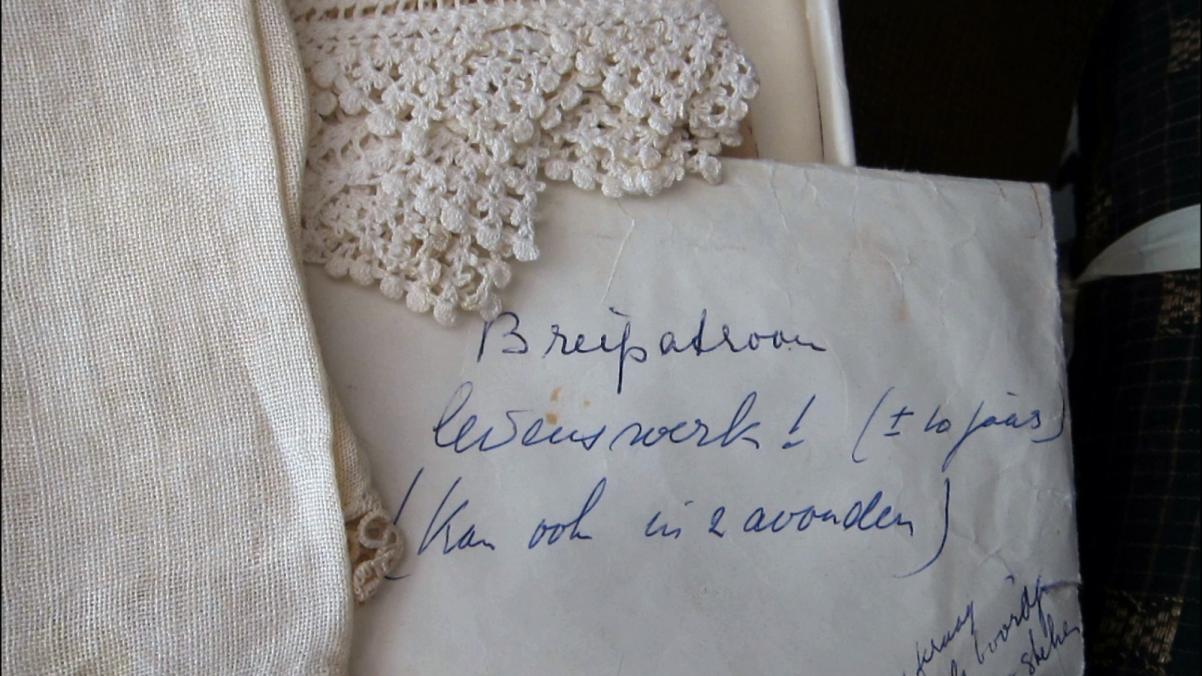 Breipatroon
levenswerk! (± 10 jaar)
(Kan ook in 2 avonden)
kraag
boordje